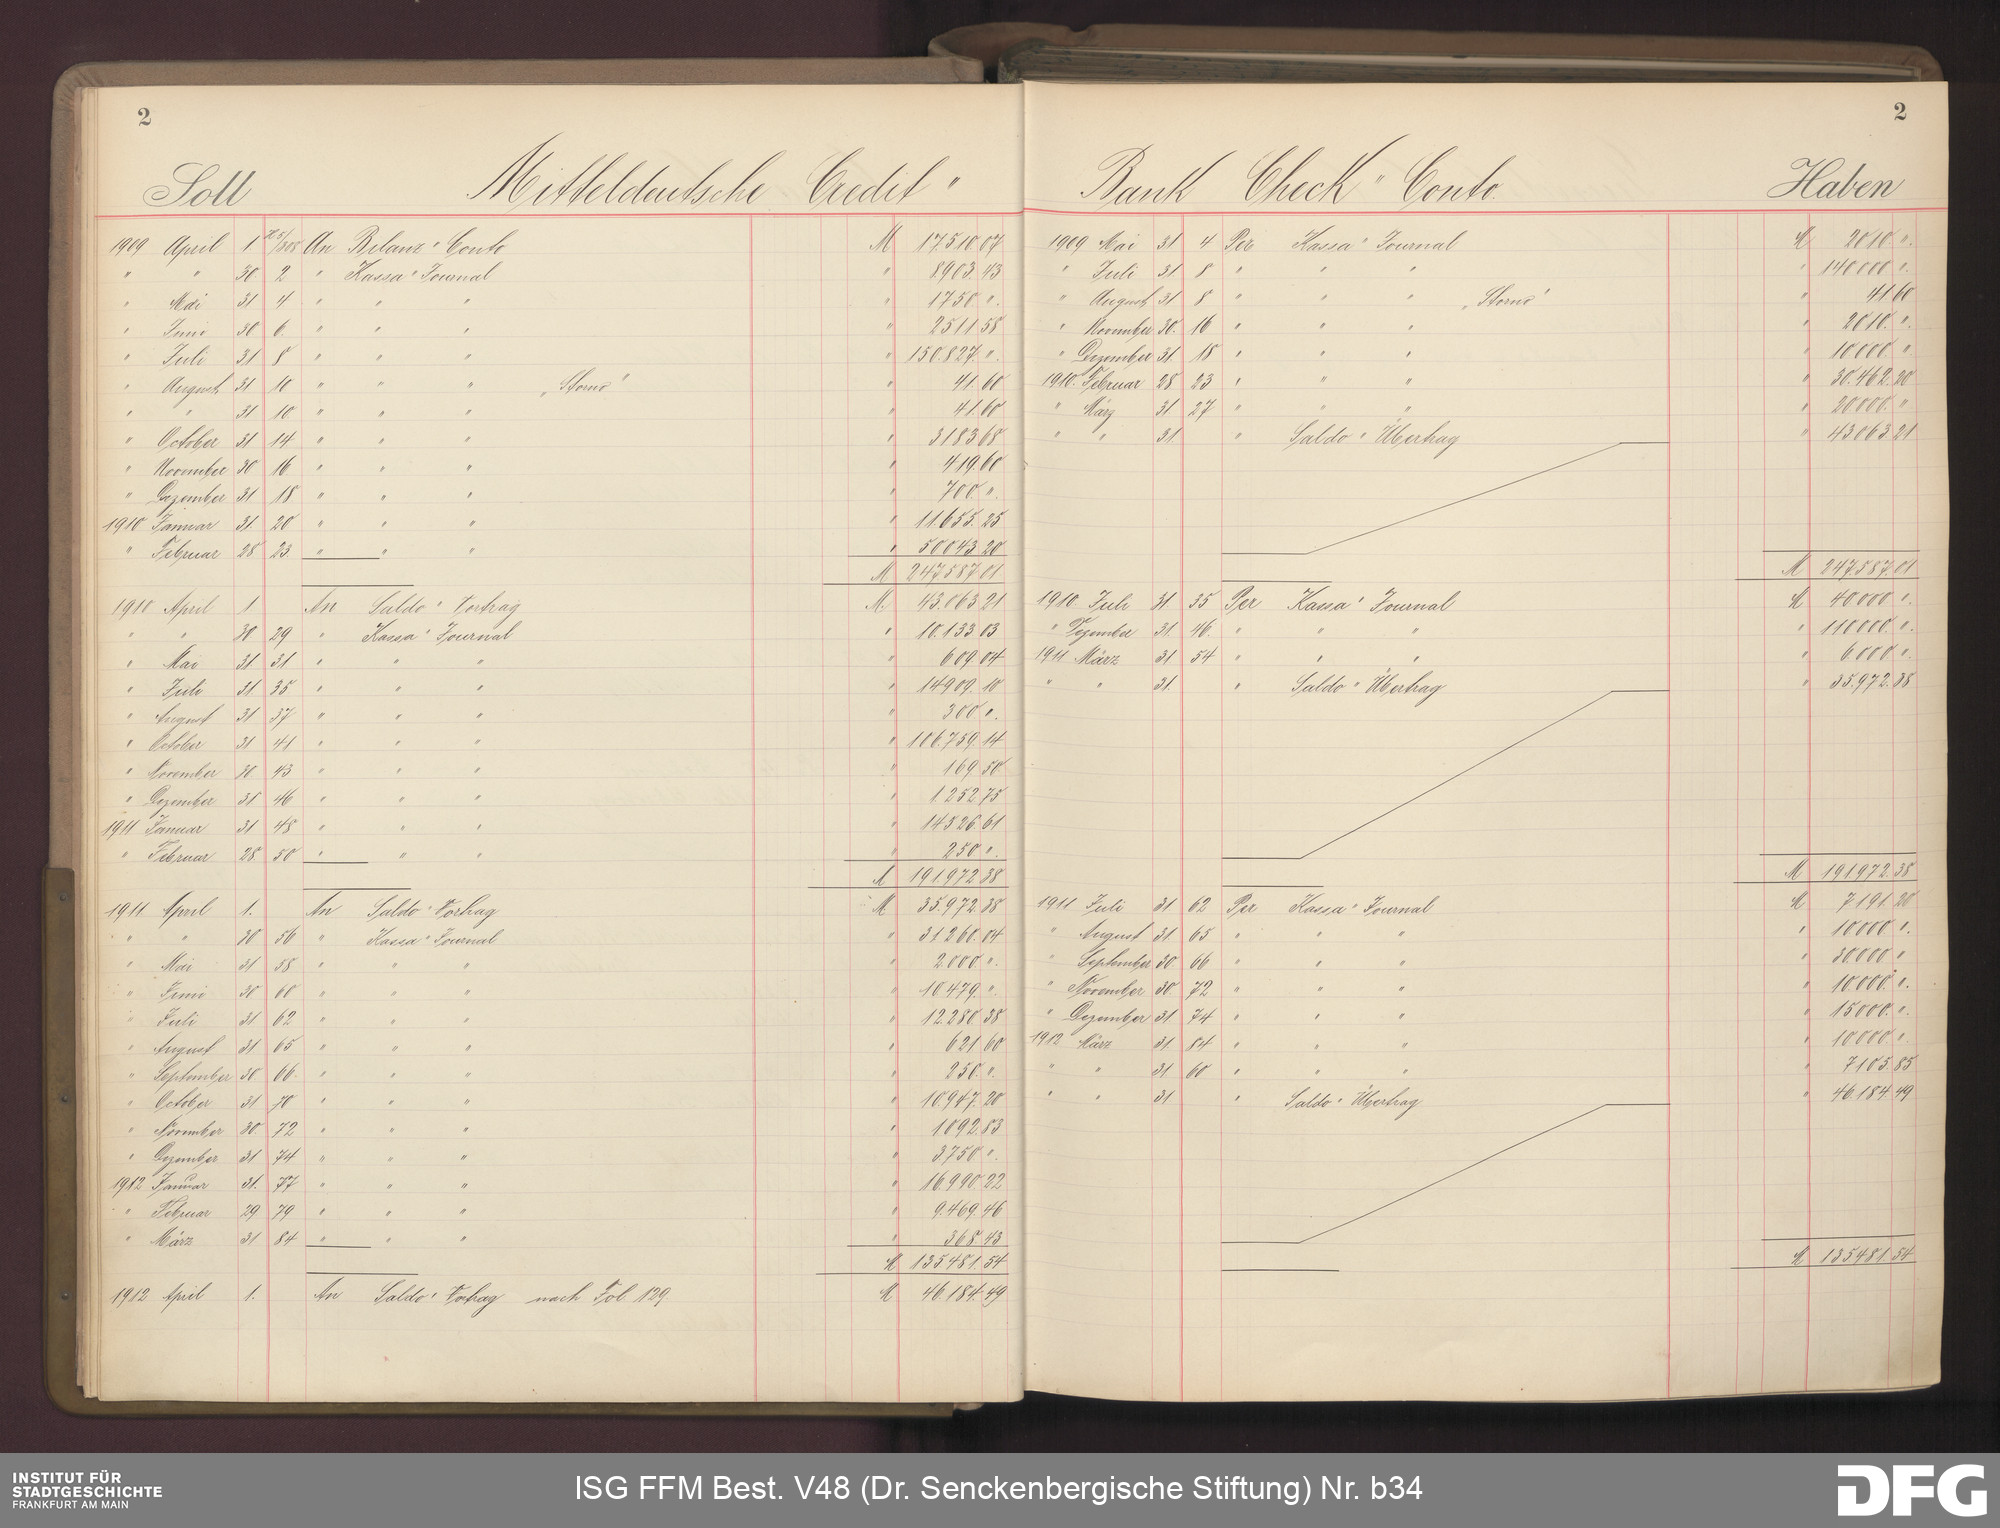 2
Soll Mitteldeutsche Credit "
1909 April 1 An Bilanz " Conto M 17510 07
" " 30 2 " Kassa " Journal " 8903 43
" Mai 31 4 " " " " 1750 "
" Juni 30 6 " " " " 2511 58
" Juli 31 8 " " " " 150.827 "
" August 31 10 " " " „Storno" " 41 60
" " 31 10 " " " " 41 60
" October 31 14 " " " " 3183 68
" November 30 16 " " " " 419 60
" Dezember 31 18 " " " " 700 "
1910 Januar 31 20 " " " " 11.655 25
" Februar 28 23 " " " " 50043 20
M 247587 01
1910 April 1 An Saldo " Vortrag M 43.063 21
" " 30 29 " Kassa " Journal " 10.133 03
" Mai 31 31 " " " " 609 04
" Juli 31 35 " " " " 14909 10
" August 31 37 " " " " 300 "
" October 31 41 " " " " 106.759 14
" November 30 43 " " " " 169 50
" Dezember 31 46 " " " " 1252 75
1911 Januar 31 48 " " " " 14526 61
" Februar 28 50 " " " " 250 "
M 191972 38
1911 April 1. An Saldo " Vortrag M 35.972 38
" " 30 56 " Kassa " Journal " 31260 04
" Mai 31 58 " " " " 2.000 "
" Juni 30 60 " " " " 10479 "
" Juli 31 62 " " " " 12.280 38
" August 31 65 " " " " 621 60
" September 30 66 " " " " 250 "
" October 31 70 " " " " 10947 20
" November 30 72 " " " " 1092 83
" Dezember 31 74 " " " " 3.750 "
1912 Januar 31 77 " " " " 16.990 22
" Februar 29 79 " " " " 9.469 46
" März 31 84 " " " " 368 43
M 135481 54
1912 April 1. An Saldo " Vortrag nach Fol. 129 M 46.184 49
2
Bank Check " Conto. Haben
1909 Mai 31 4 Per Kassa " Journal M 2010 "
" Juli 31 8 " " " " 140000 "
" August 31 8 " " " „Storno" " 41 60
" November 30 16 " " " " 2010 "
" Dezember 31 18 " " " " 10.000 "
1910 Februar 28 23 " " " " 30.462 20
" März 31 27 " " " " 20000 "
" " 31 " Saldo " Übertrag " 43063 21
M 247587 01
1910 Juli 31 35 Per Kassa " Journal M 40000 "
" Dezember 31 46 " " " " 110000 "
1911 März 31 54 " " " " 6.000 "
" " 31. " Saldo " Übertrag " 35.972 38
M 191972 38
1911 Juli 31 62 Per Kassa " Journal M 7191 20
" August 31 65 " " " " 10000 "
" September 30 66 " " " " 30000 "
" November 30 72 " " " " 10.000 "
" Dezember 31 74 " " " " 15000 "
1912 März 31 84 " " " " 10000 "
" " 31 60 " " " " 7105 85
" " 31 " Saldo " Übertrag " 46.184 49
M 135.481 54
INSTITUT FÜR
STADTGESCHICHTE
FRANKFURT AM MAIN
ISG FFM Best. V48 (Dr. Senckenbergische Stiftung) Nr. b34
DFG